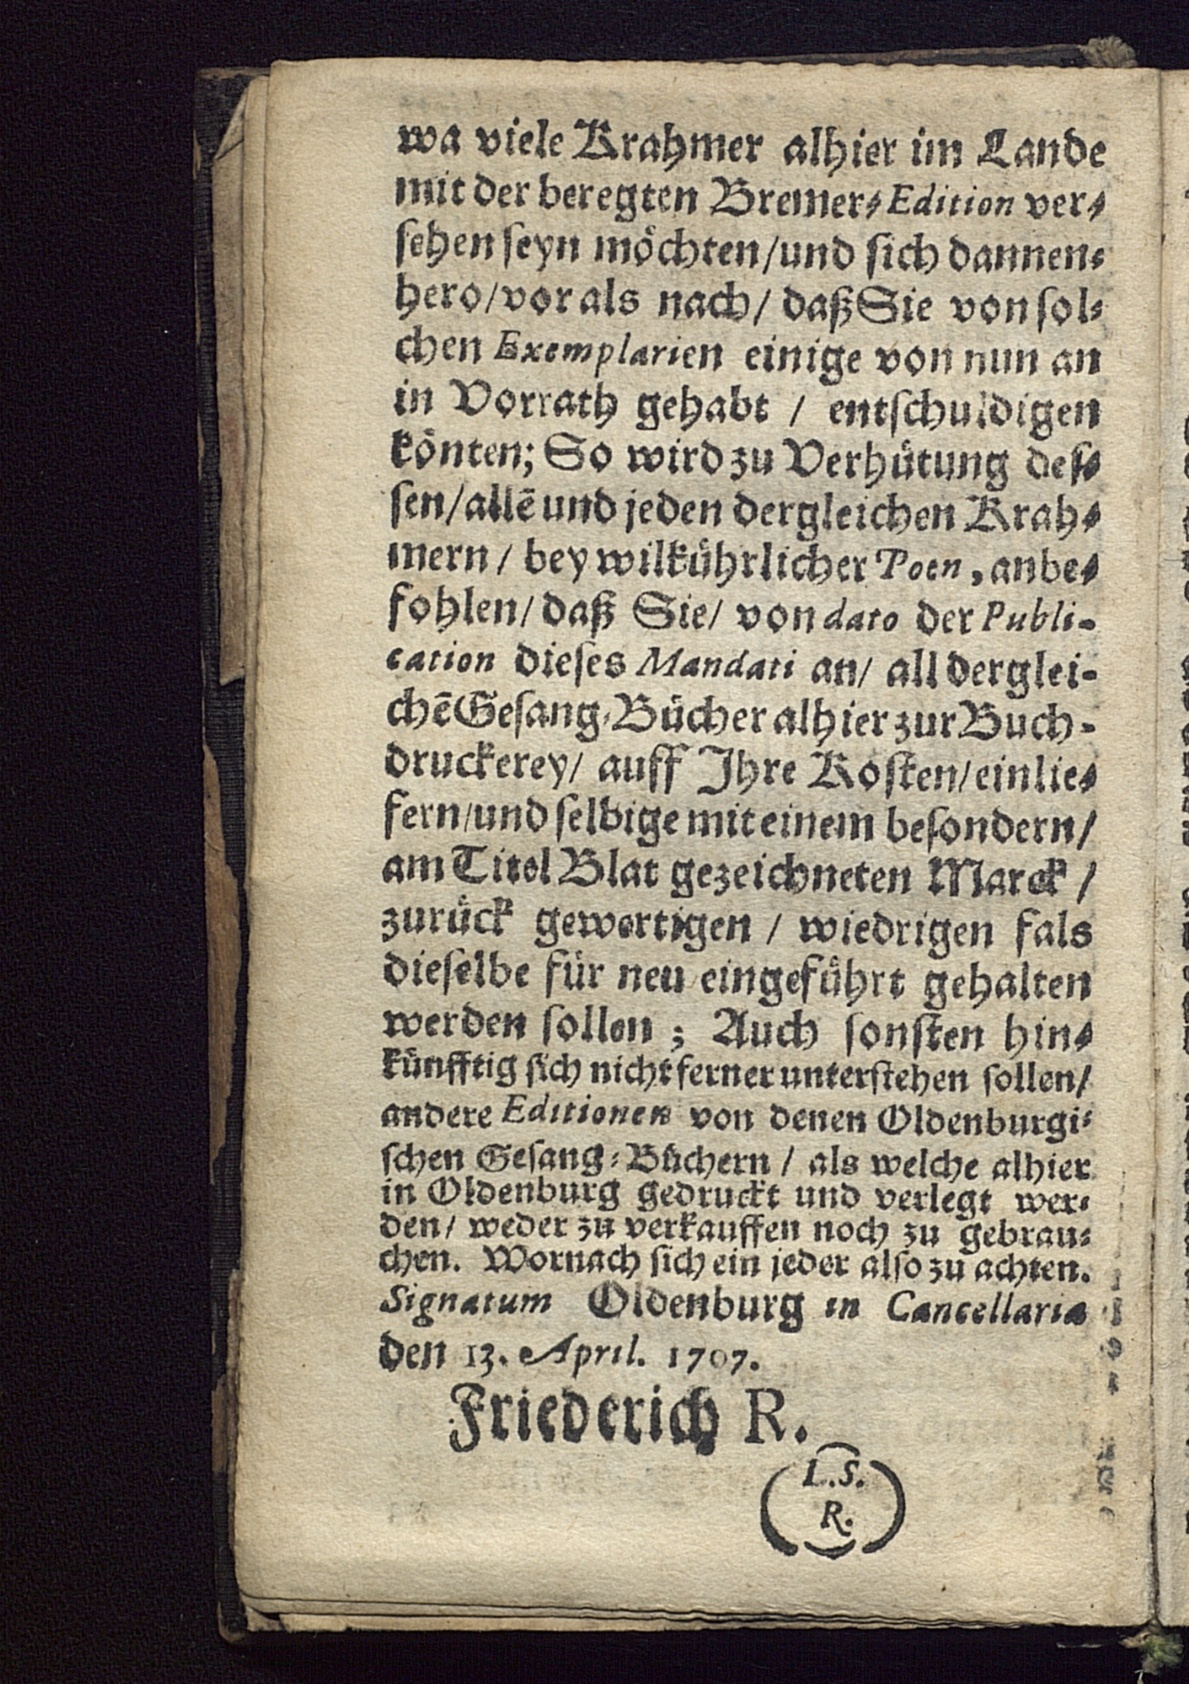 wa viele Krahmer alhier im Lande
mit der beregten Bremer-Edition ver-
sehen seyn möchten/und sich dannen-
hero/vor als nach/ daß Sie von sol-
chen Exemplarien einige von nun an
in Vorrath gehabt / entschuldigen
könten; So wird zu Verhütung des-
sen/allē und jeden dergleichen Krah-
mern / bey wilkührlicher Poen, anbe-
fohlen/ daß Sie/ von dato der Publi-
cation dieses Mandati an/ all derglei-
chē Gesang-Bücher alhier zur Buch-
druckerey/ auff Ihre Kosten/einlie-
fern/und selbige mit einem besondern/
am Titel Blat gezeichneten Marck /
zurück gewertigen / wiedrigen fals
dieselbe für neu eingeführt gehalten
werden sollen ; Auch sonsten hin-
künfftig sich nicht ferner unterstehen sollen/
andere Editionen von denen Oldenburgi-
schen Gesang-Büchern / als welche alhier
in Oldenburg gedruckt und verlegt wer-
den/ weder zu verkauffen noch zu gebrau-
chen. Wornach sich ein jeder also zu achten.
Signatum Oldenburg in Cancellaria
den 13. April. 1707.
Friederich R.
L.S.
R.